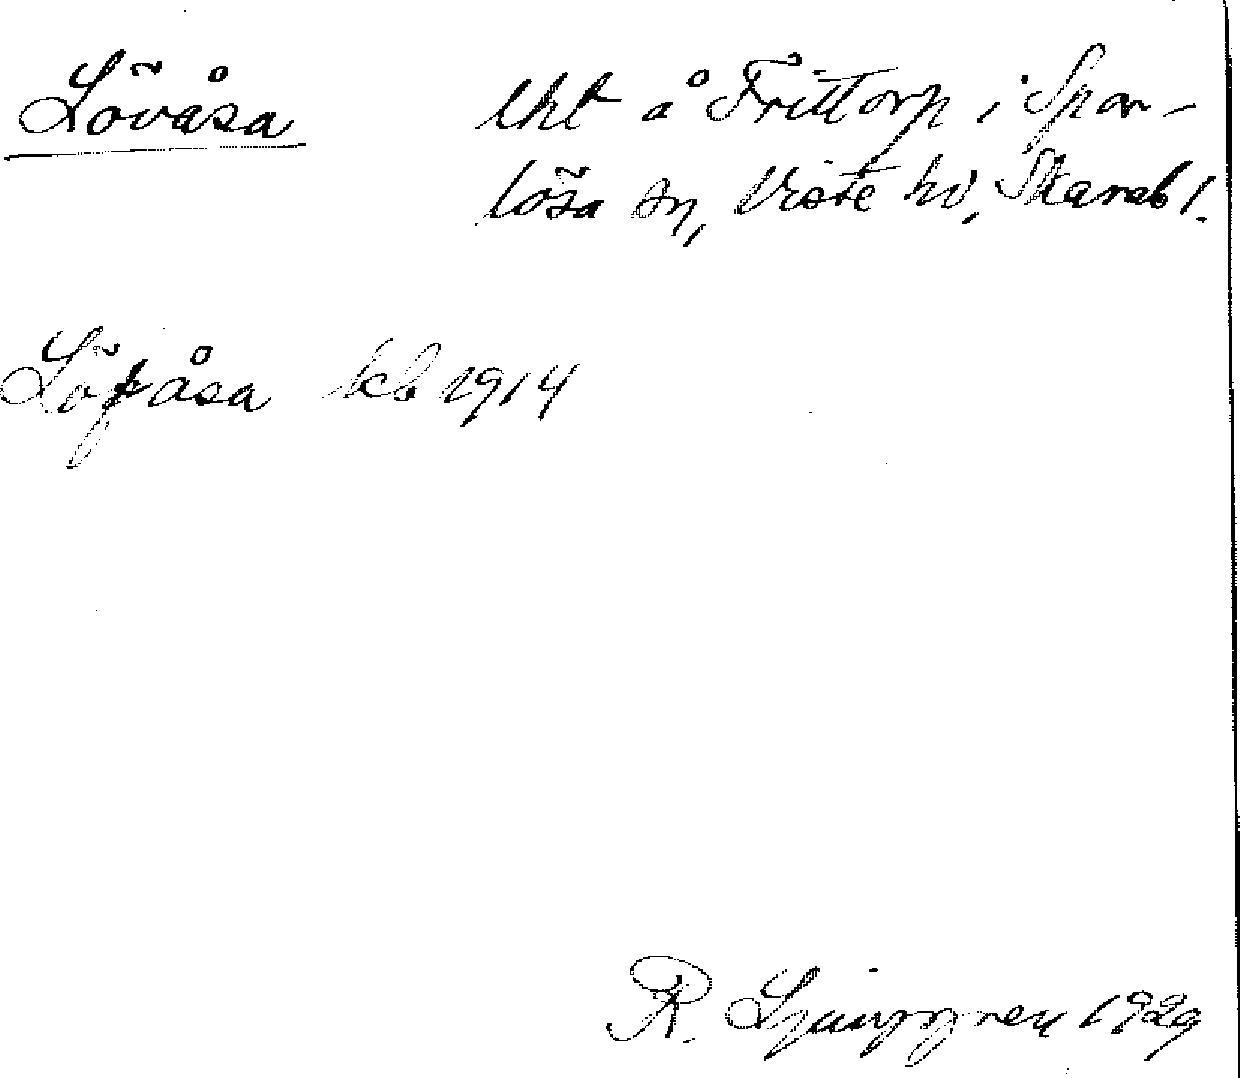 Lövåsa lht å Frittorp i Spar-
lösa sn, Viste hd, Skarab l.
Löfåsa kb 1914
R. Ljunggren 1929